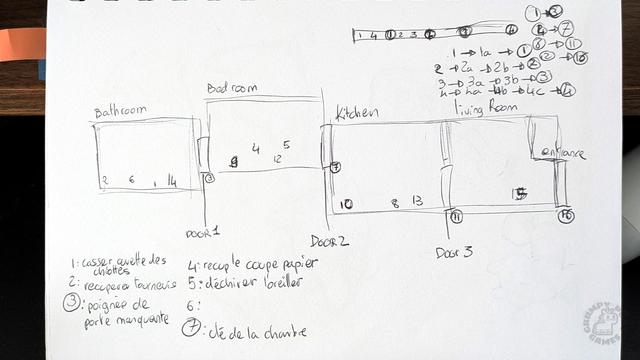 1 → 2
1 4 1 2 3 2 3 4
→ 7
8 → 11
12 → 16
1 → 1a → 1
2 → 2a → 2b → 2
3 → 3a → 3b → 3
4 → 4a → 4b → 4c → 4
Bathroom
Bedroom
Kitchen
living Room
entrance
2 6 1 14
3
9 4 5
12
7
10 8 13
11
15
16
DOOR 1
DOOR 2
Door 3
1: casser cuvette des
chiottes
2: recuperer tournevis
3: poignée de
porte manquante
4: recup le coupe papier
5: déchirer loreiller
6:
7: clé de la chambre
GRUMPY
GAMES